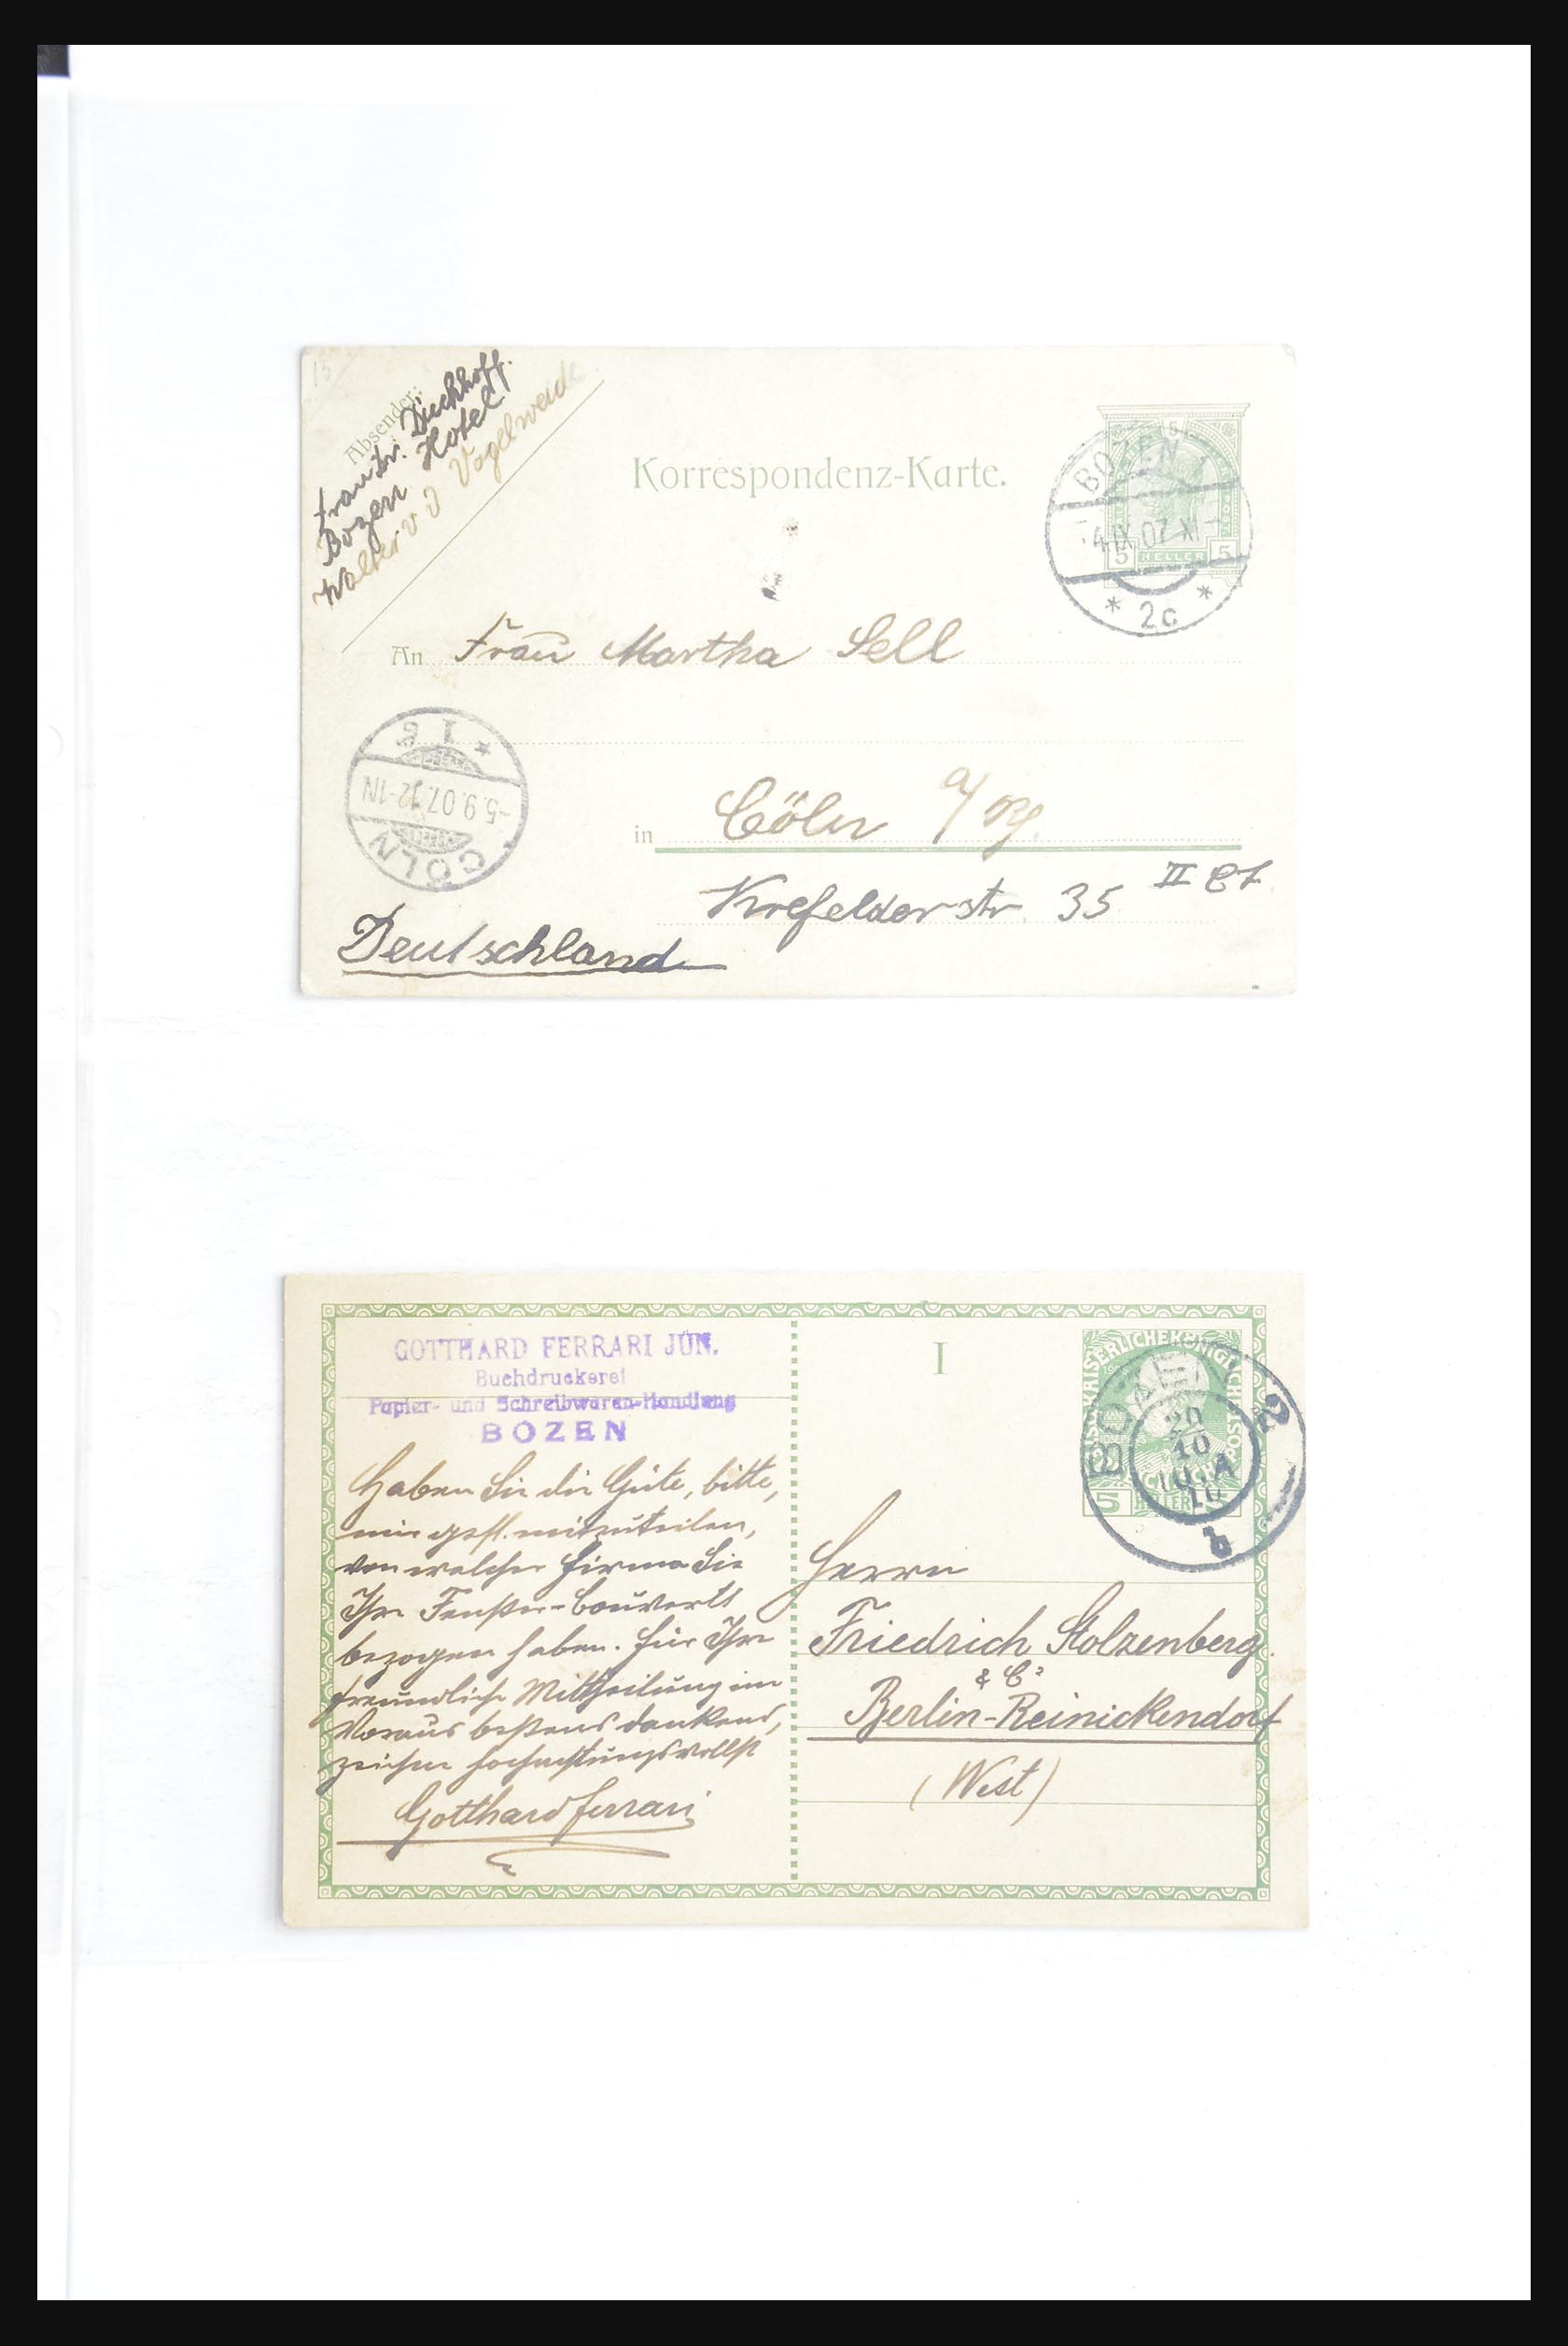 Absender:
Frau Dr. Düchhoff.
Bozen Hotel
Walter v d Vogelweide
Korrespondenz-Karte.
5 HELLER 5
BOZEN 1
-4 IX 07 XI-
* 2c *
An Frau Martha Sell
CÖLN
-5.9.07.12-1N
* 1
in Cöln a/Rh.
Krefelderstr. 35 II
Deutschland
GOTTHARD FERRARI JUN.
Buchdruckerei
Papier- und Schreibwaren-Handlung
BOZEN
I
BOZEN 2
20
10
10
b
5 HELLER
Haben Sie die Güte, bitte,
mir gefl. mitzuteilen,
von welcher Firma Sie
Ihre Fenster-Couverts
bezogen haben. Für Ihre
freundliche Mittheilung im
Voraus bestens dankend,
zeichne hochachtungsvollst
Gotthard Ferrari
Herrn
Friedrich Stolzenberg
& Co
Berlin-Reinickendorf
(West)